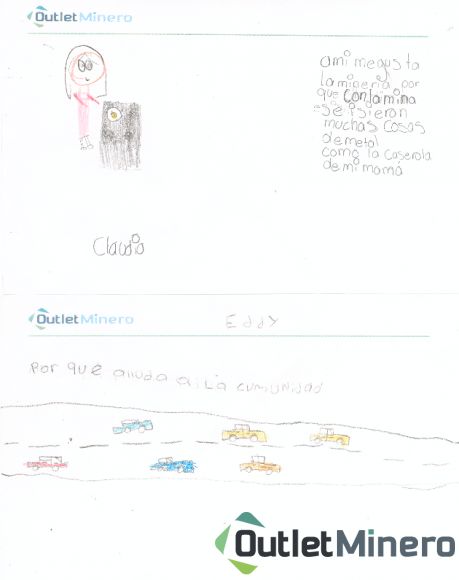 OutletMinero
ami me gusta
la mineria por
que conlamina
se isieron
muchas cosas
de metal
como la caserola
de mi mamá
Claudia
OutletMinero
Eddy
Por que aiuda a la cumunidad
OutletMinero